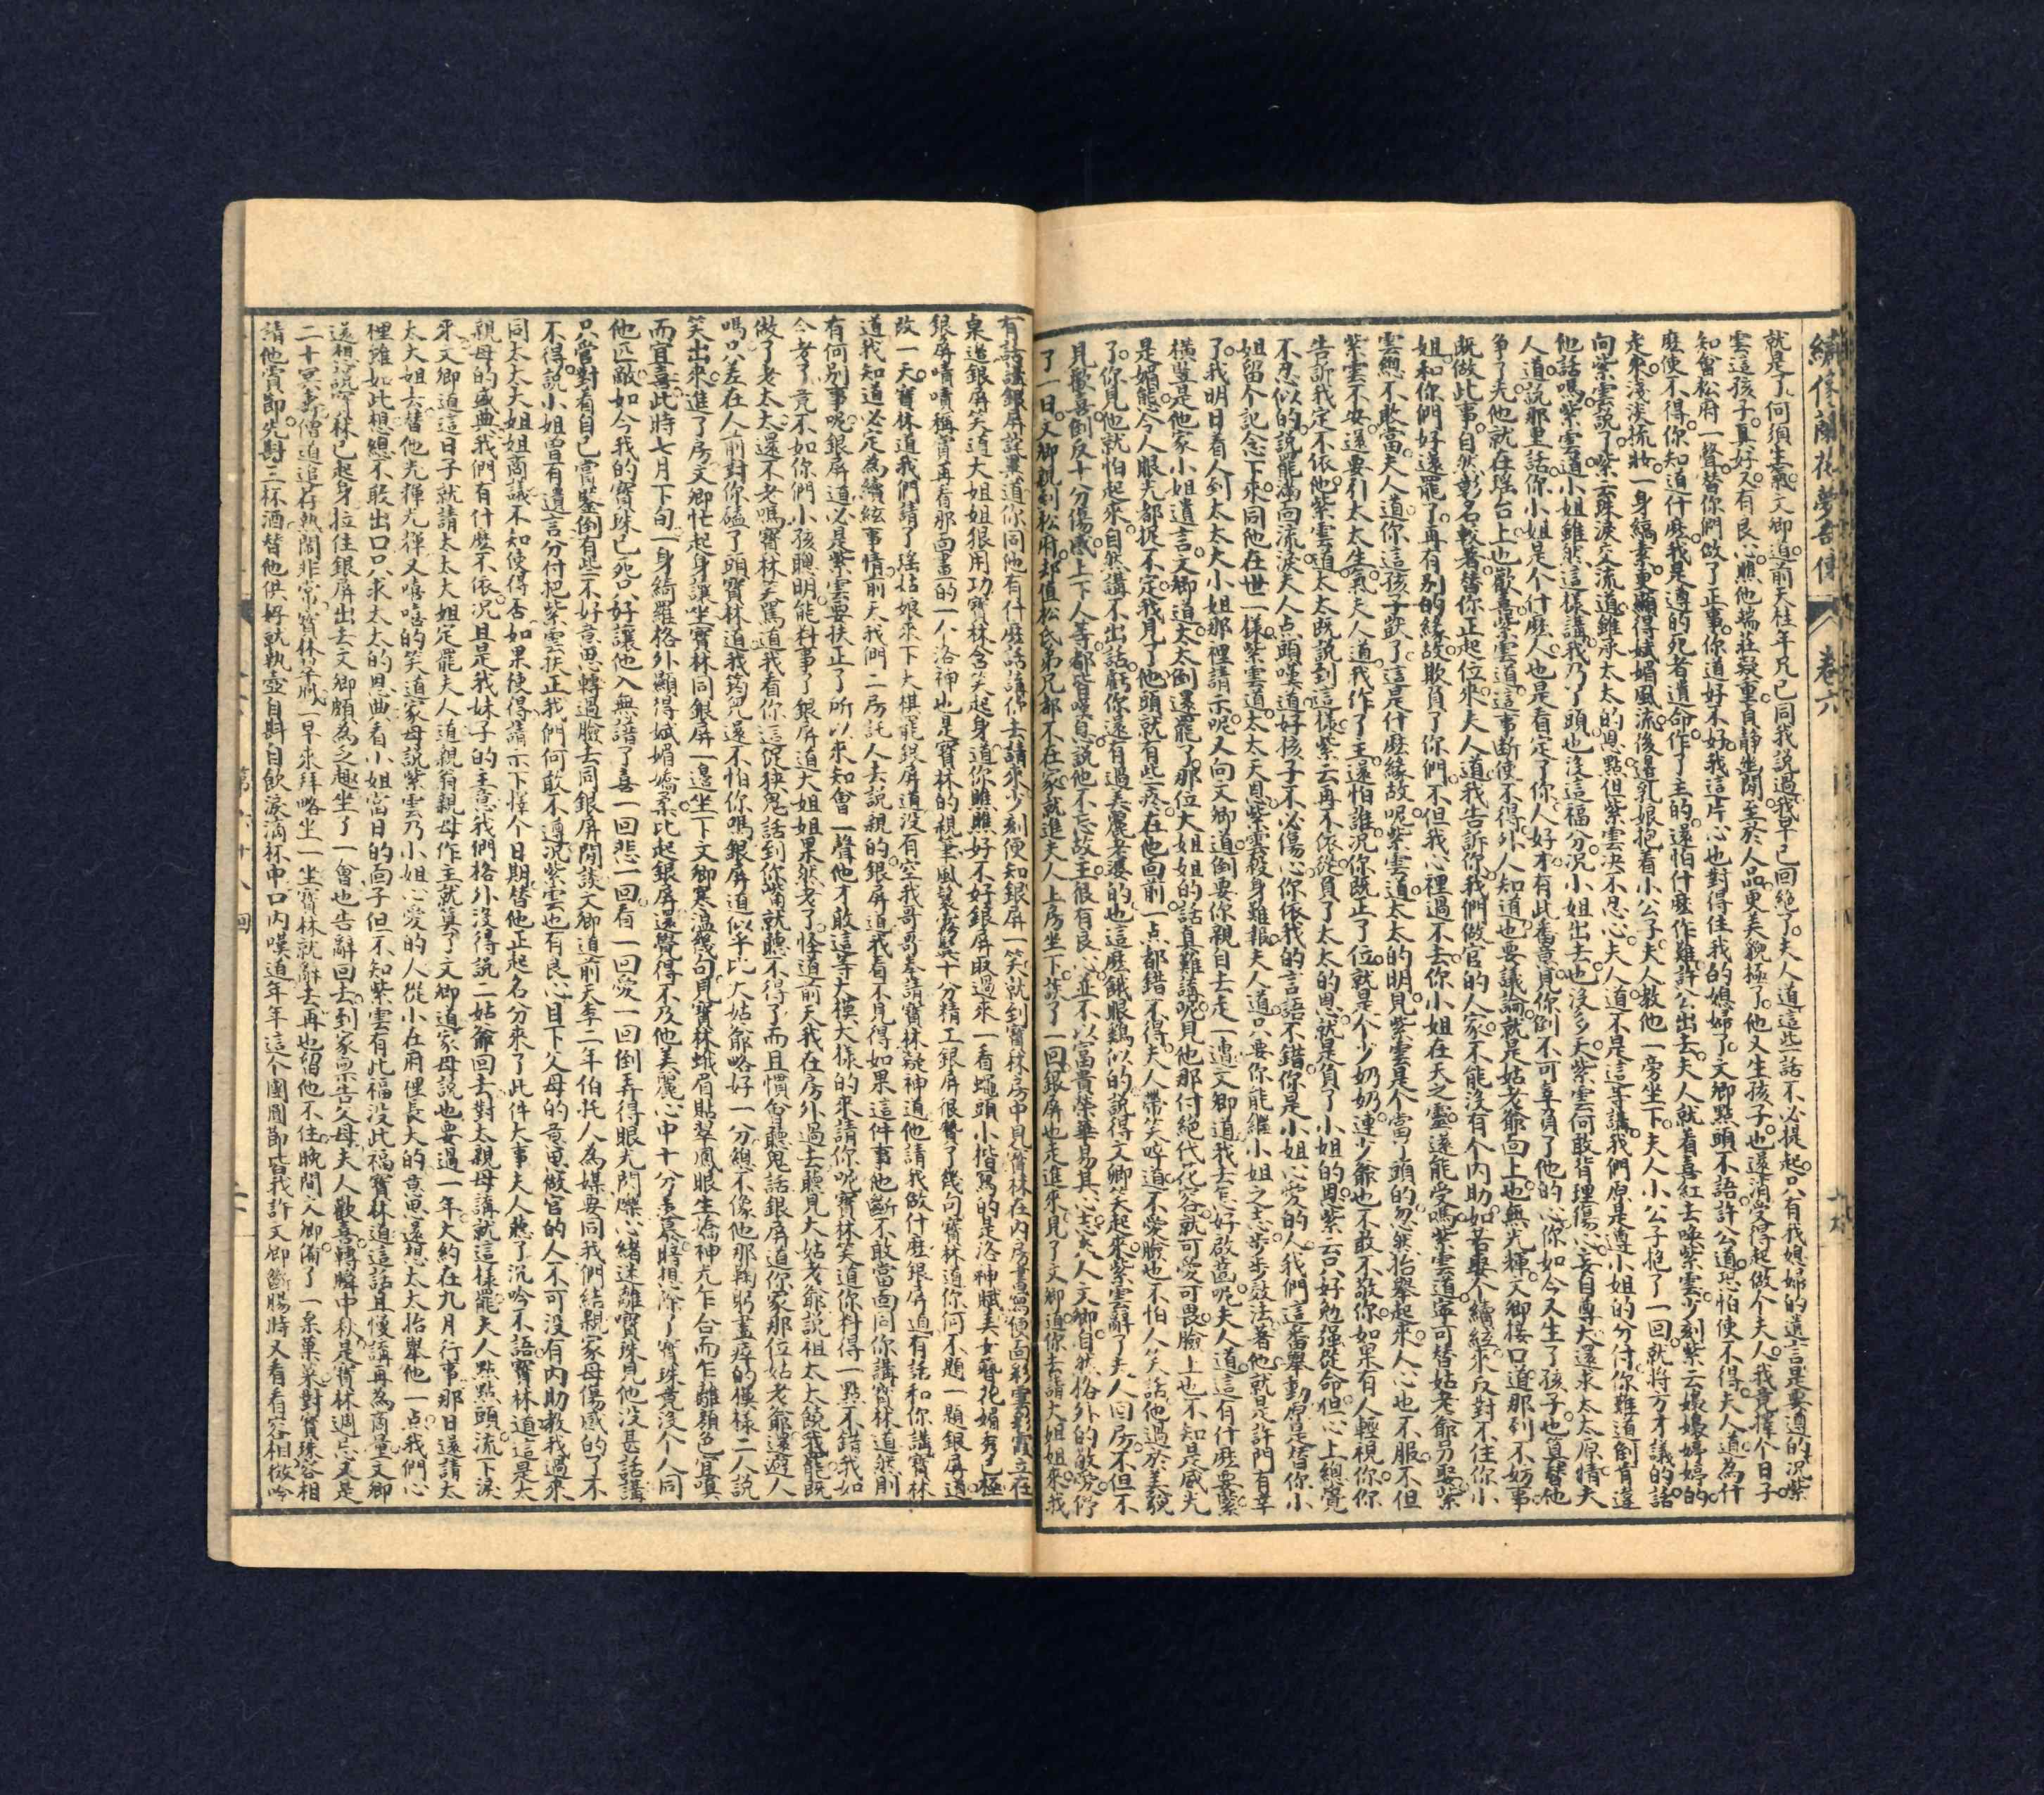 繡像蘭花夢奇傳 卷六
就是了何須生氣文卿道前天桂年兄已同我說過我早已回絕了夫人道這些話不必提起只有我媳婦的遺言是要遵的況紫
雲這孩子真好又有良心照他端莊凝重貞靜幽閒至於人品更美貌極了他又生孩子也還消受得起做个夫人我竟擇个日子
知會松府一聲替你們做了正事你道好不好我這片心也對得住我的媳婦了文卿點頭不語許公道恐怕使不得夫人道為什
麼使不得你知道什麼我是遵的死者遺命作了主的還怕什麼作難許公出去夫人就着喜紅去喚紫雲少刻紫云娘娘婷婷的
走來淺淡梳妝一身縞素更顯得嫵媚風流後邊乳娘抱着小公子夫人教他一旁坐下夫人小公子抱了一回就將方才議的話
向紫雲說了紫云珠淚交流道雖承太太的恩點但紫雲決不忍心夫人道不是這等講我們原是遵小姐的分付你難道倒肯違
他話嗎紫雲道小姐雖然這樣講我乃了頭也沒這福分況小姐出去也沒多天紫雲何敢背理傷心妄自尊大還求太太原情夫
人道說那里話你小姐是个什麼人也是看定了你人好才有此番意見你倒不可辜負了他的心你如今又生了孩子也算替他
爭了光他就在瑤台上也歡喜紫雲道這事斷使不得外人知道也要議論就是姑老爺面上也無光輝文卿接口道那到不妨事
既做此事自然彰名較著替你正起位來夫人道我告訴你我們做官的人家不能沒有个内助如若要个續絃來反對不住你小
姐和你們好還罷了再有別的緣故欺負了你們不但我心裡過不去你小姐在天之靈遂能受嗎紫雲道寧可替姑老爺另娶紫
雲總不敢當夫人道你這孩子歆了這是什麼緣故呢紫雲道太太的明見紫雲是个當了頭的忽然抬舉起來人心也不服不但
紫雲不安還要引太太生氣夫人道我作了主還怕誰況你既正了位就是个少奶奶連少爺也不敢不敬你如果有人輕視你你
告訴我定不依他紫雲道太太既說到這樣紫云再不依從負了太太的恩就是負了小姐的恩紫云只好勉强從命但心上總覺
不忍似的說罷滿面流淚夫人点頭嘆道好孩子不必傷心你依我的言語不錯你是小姐心愛的人我們這番舉動原是替你小
姐留个記念下來同他在世一樣紫雲道太太天恩紫雲殺身難報夫人道只要你能繼小姐之志步步效法著他就是許門有幸
了我明日着人到太太大小姐那裡請示呢又向文卿道倒要你親自去走一遭文卿道我去怎好啟齒呢夫人道這有什麼要緊
橫豎是他家小姐遺言文卿道太太倒還罷了那位大姐姐的話真難講呢見他那付絕代花容就可愛可畏臉上也不知是感光
是媚態令人眼光都捉不定我見了他頭就有些疼在他面前一点都錯不得夫人帶笑啐道不愛臉也不怕人笑話他過於美貌
了你見他就怕起來自然講不出話虧你還有過美麗老婆的也這麼餓眼鷄似的說得文卿笑起來紫雲辭了夫人回房不但不
見歡喜倒反十分傷感上下人等都皆嘆息說他不忘故主很有良心並不以富貴榮華易其心志夫人文卿自然格外的敬愛停
了一日文卿親到松府却值松氏弟兄都不在家就進夫人上房坐下談了一回銀屏也走進來見了文卿道你去請大姐姐來我
有話講銀屏詫異道你同他有什麼話講你去請來少刻便知銀屏一笑就到寶林房中見寶林在内房書寫便面彩雲彩霞立在
桌邊銀屏笑道大姐姐狠用功寶林含笑起身道你瞧瞧好不好銀屏取過來一看蠅頭小楷寫的是洛神賦美女簪花媚秀已極
銀屏嘖嘖稱賞再看那面畫的一人洛神也是寶林的親筆風鬟霧鬢十分精工銀屏很贊了幾句寶林道你何不題一題銀屏道
改一天寶林道我們請了瑤姑娘來下大棋罷銀屏道没有空我哥哥奉請寶林凝神道他請我做什麼銀屏道有話和你講寶林
道我知道必定為續絃事情前天我們二房託人去說親的銀屏道我看不見得如果這件事他斷不敢當面同你講寶林道然則
有何別事呢銀屏道必是紫雲要扶正了所以來知會一聲他才敢這等大模大樣的來請你呢寶林笑道你料得一點不錯我如
今老了竟不如你們小孩聰明能料事了銀屏道大姐姐果然老了怪道前天我在房外過去聽見大姑老爺說祖太太饒我罷既
做了老太太還不老嗎寶林笑駡道我看你這促狹鬼話到你嘴就聽不得了而且慣會聽鬼話銀屏道你家那位姑老爺還避人
嗎只差在人前對你磕了頭寶林道我筠兒還不怕你嗎銀屏道似乎比大姑爺略好一分總不像他那鞠躬盡瘁的模樣二人說
笑出來進了房文卿忙起身讓坐寶林同銀屏一邊坐下文卿寒溫幾句見寶林蛾眉貼翠鳳眼生嬌神光乍合而乍離顏色宜嗔
而宜喜此時七月下旬一身綺羅格外顯得嫵媚嬌柔比起銀屏還覺得不及他美麗心中十分羨慕暗想除了寶珠竟沒个人同
他匹敵如今我的寶珠已死只好讓他入無譜了喜一回悲一回看一回愛一回倒弄得眼光閃爍心緒迷離寶珠見他沒甚話講
只當對着自己賞鑒倒有些不好意思轉過臉去同銀屏閒談文卿道前天李二年伯託人為媒要同我們結親家母傷感的了不
不得說小姐曾有遺言分付把紫雲扶正我們何敢不遵況紫雲也有良心目下父母的意思做官的人不可沒有内助教我過來
同太太大姐姐商議不知使得否如果使得請示下擇个日期替他正起名分來了此件大事夫人聽了沉吟不語寶林道這是太
親母的盛典我們有什麼不依況且是我妹子的主意我們格外沒得說二姑爺回去對太親母講就這樣罷夫人點點頭流下淚
來文卿道這日子就請太太大姐定罷夫人道親翁親母作主就算了文卿道家母說也要過一年大約在九月行事那日還請太
太大姐去替他光輝光輝又嘻嘻的笑道家母說紫雲乃小姐心愛的人從小在府裡長大的意思還想太太抬舉他一点我們心
裡雖如此想總不敢出口只求太太的恩典看小姐當日的面子但不知紫雲有此福沒此福寶林道這話且慢講再為商量文卿
還想說寶林已起身拉住銀屏出去文卿頗為乏趣坐了一會也告辭回去到家稟告父母夫人歡喜轉瞬中秋是寶林週忌又是
二十冥壽僧道追荐熱鬧非常寶林早晨一早來拜略坐一坐寶林就辭去再也留他不住晚間文卿備了一桌菓菜對寶珠容相
請他賞節先斟三杯酒替他供好就執壺自斟自飲淚滴杯中口内嘆道年年這个團圓節皆我許文卿斷腸時又看看容相微吟
第六十八回